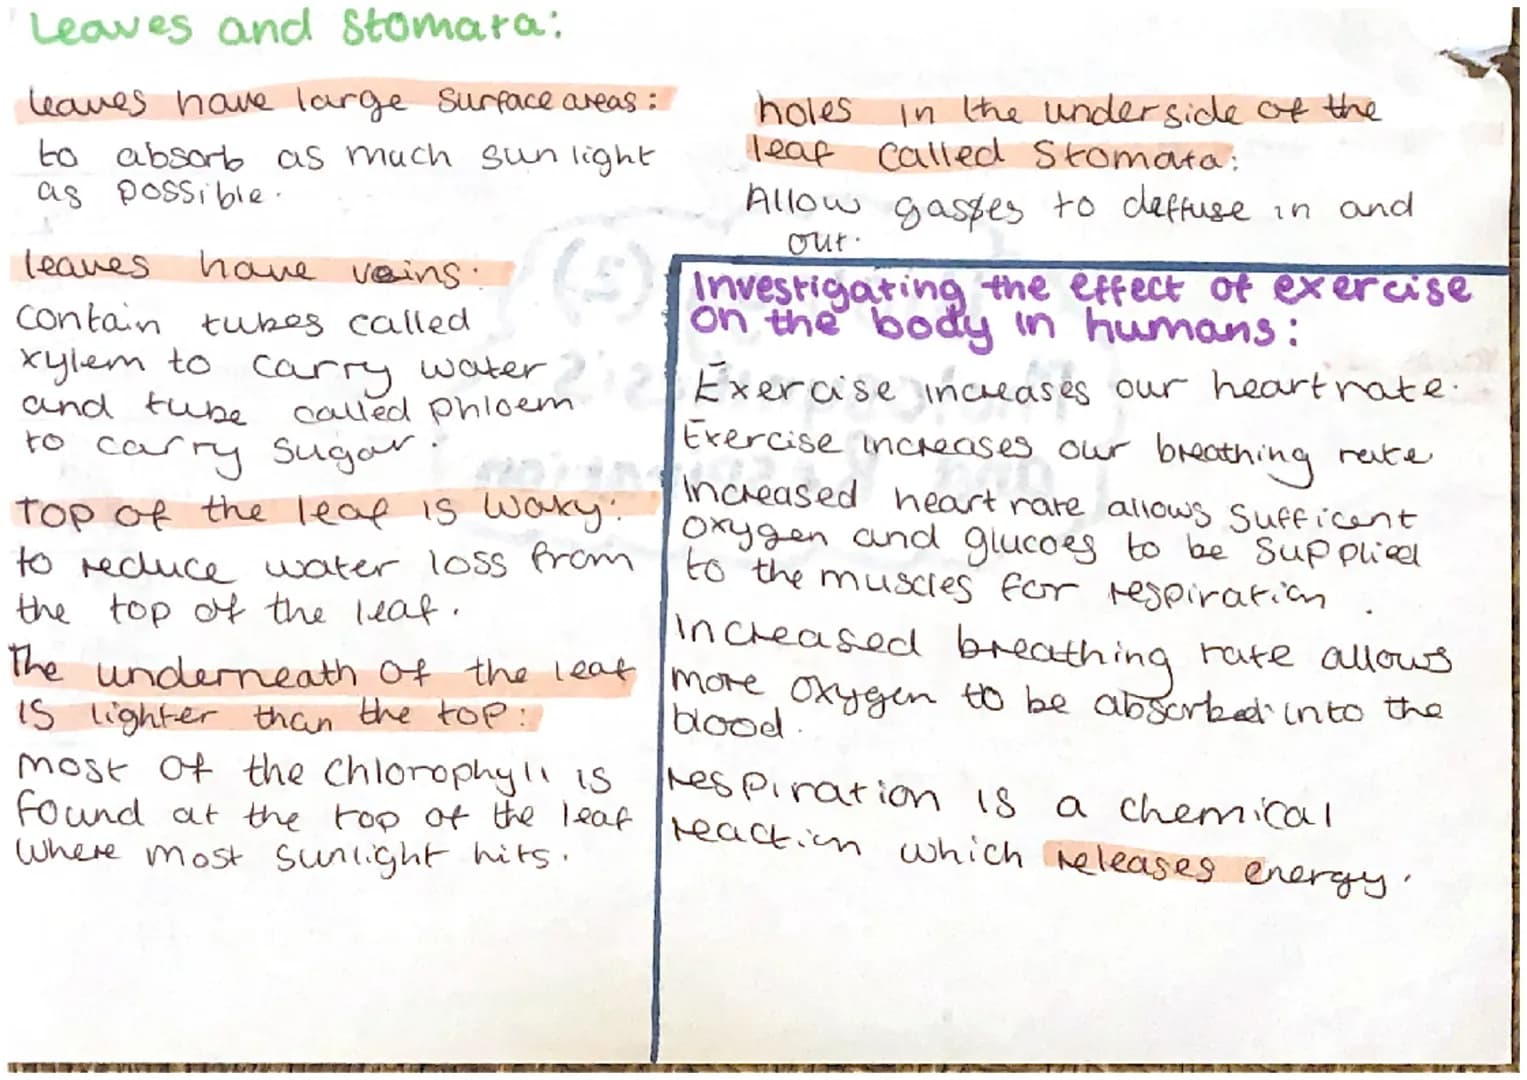 Leaves and Stomata:
leaves have large surface areas:
to absorb as much sunlight
as possible.
leaves have veins:
contain tubes called
xylem to carry water
and tube called phloem
to carry sugar.
Top of the leaf is waxy:
to reduce water loss from
the top of the leaf.
The underneath of the leaf
is lighter than the top:
most of the chlorophyll is
found at the top of the leaf
where most sunlight hits.
holes in the underside of the
leaf called Stomata:
Allow gasses to deffuse in and
out.
Investigating the effect of exercise
on the body in humans:
Exercise increases our heart rate.
Exercise increases our breathing rate
Increased heart rate allows sufficent
oxygen and glucoes to be supplied
to the muscles for respiration.
Increased breathing rate allows
more oxygen to be absorbed into the
blood.
respiration is a chemical
reaction which releases energy.
(2)
Photosynthesis
and Respiration